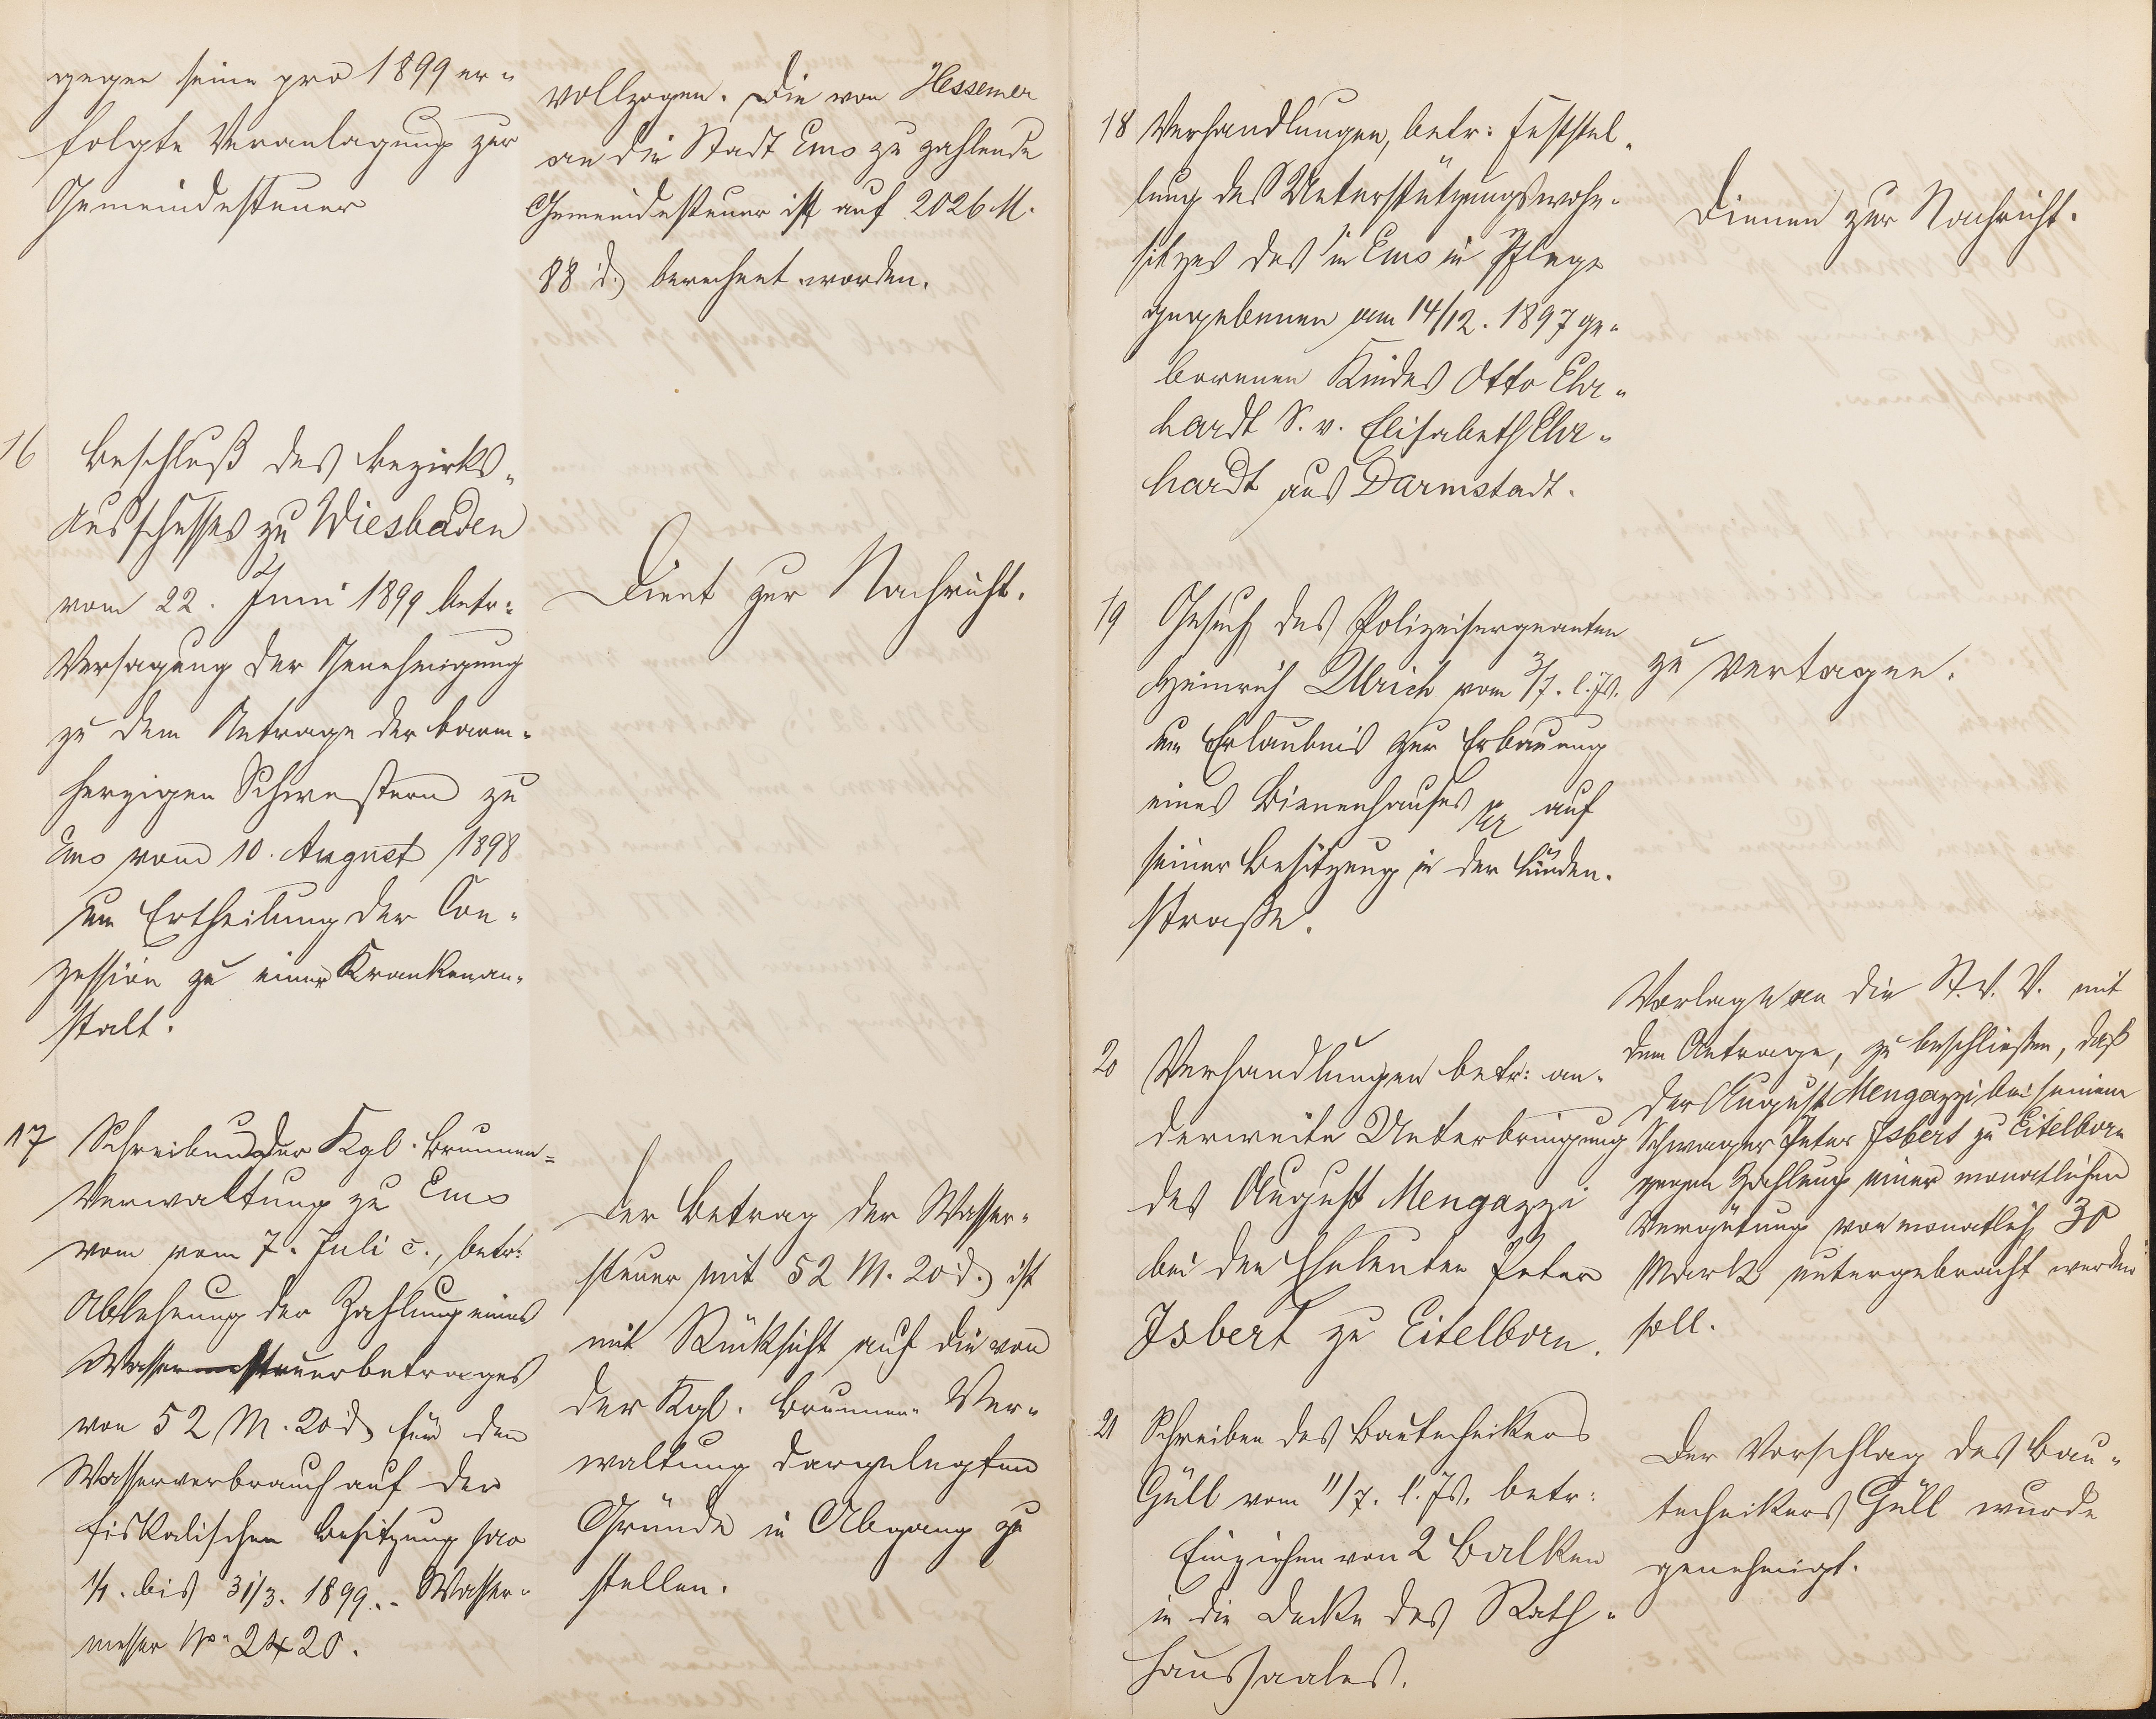 gegen seine pro 1899 er-
folgte Veranlagung zur
Gemeindesteuer
vollzogen. Die von Hessemer
an die Stadt Ems zu zahlende
Gemeindesteuer ist auf 2026 M.
88 d. berechnet worden.
16 Beschluß des Bezirks-
Ausschusses zu Wiesbaden
vom 22. Juni 1899 betr:
Versagung der Genehmigung
zu dem Antrage der barm-
herzigen Schwestern zu
Ems vom 10. August 1898
um Ertheilung der Con-
zession zu einer Krankenan-
stalt.
Dient zur Nachricht.
17 Schreiben der Kgl. Brunnen-
Verwaltung zu Ems
vom vom 7. Juli c., betr:
Ablehnung der Zahlung eines
Wassersteuerbetrages
von 52 M. 20 d für den
Wasserverbrauch auf der
fiskalischen Besitzung pro
1/1. bis 31/3. 1899. - Wasser-
messer No. 2420.
Der Betrag der Wasser-
steuer mit 52 M. 20 d. ist
mit Rücksicht auf die von
der Kgl. Brunnen-Ver-
waltung dargelegten
Gründe in Abgang zu
stellen.
18 Verhandlungen, betr: Feststel-
lung des Unterstützungswohn-
sitzes des in Ems in Pflege
gegebenen am 14/12. 1897 ge-
borenen Kindes Otto Ehr-
hardt S. v. Elisabeth Ehr-
hardt aus Darmstadt.
Dienen zur Nachricht.
19 Gesuch des Polizeisergeanten
Heinrich Ulrich vom 3/7. l. Js.
um Erlaubnis zur Erbauung
eines Bienenhauses auf
seiner Besitzung in der Linden-
straße.
zu vertagen.
20 Verhandlungen betr: an-
derweite Unterbringung
des August Mengazzi
bei den Eheleuten Peter
Isbert zu Eitelborn.
Vorlage an die St. V. V. mit
dem Antrage, zu beschließen, daß
der August Mengazzi bei seinem
Schwager Peter Isbert zu Eitelborn
gegen Zahlung einer monatlichen
Vergütung von monatlich 30
Mark untergebracht werden
soll.
21 Schreiben des Bautechnikers
Güll vom 11/7. l. Js. betr:
Einziehen von 2 Balken
in die Decke des Rath-
haussaales.
Der Vorschlag des Bau-
technikers Güll wurde
genehmigt.